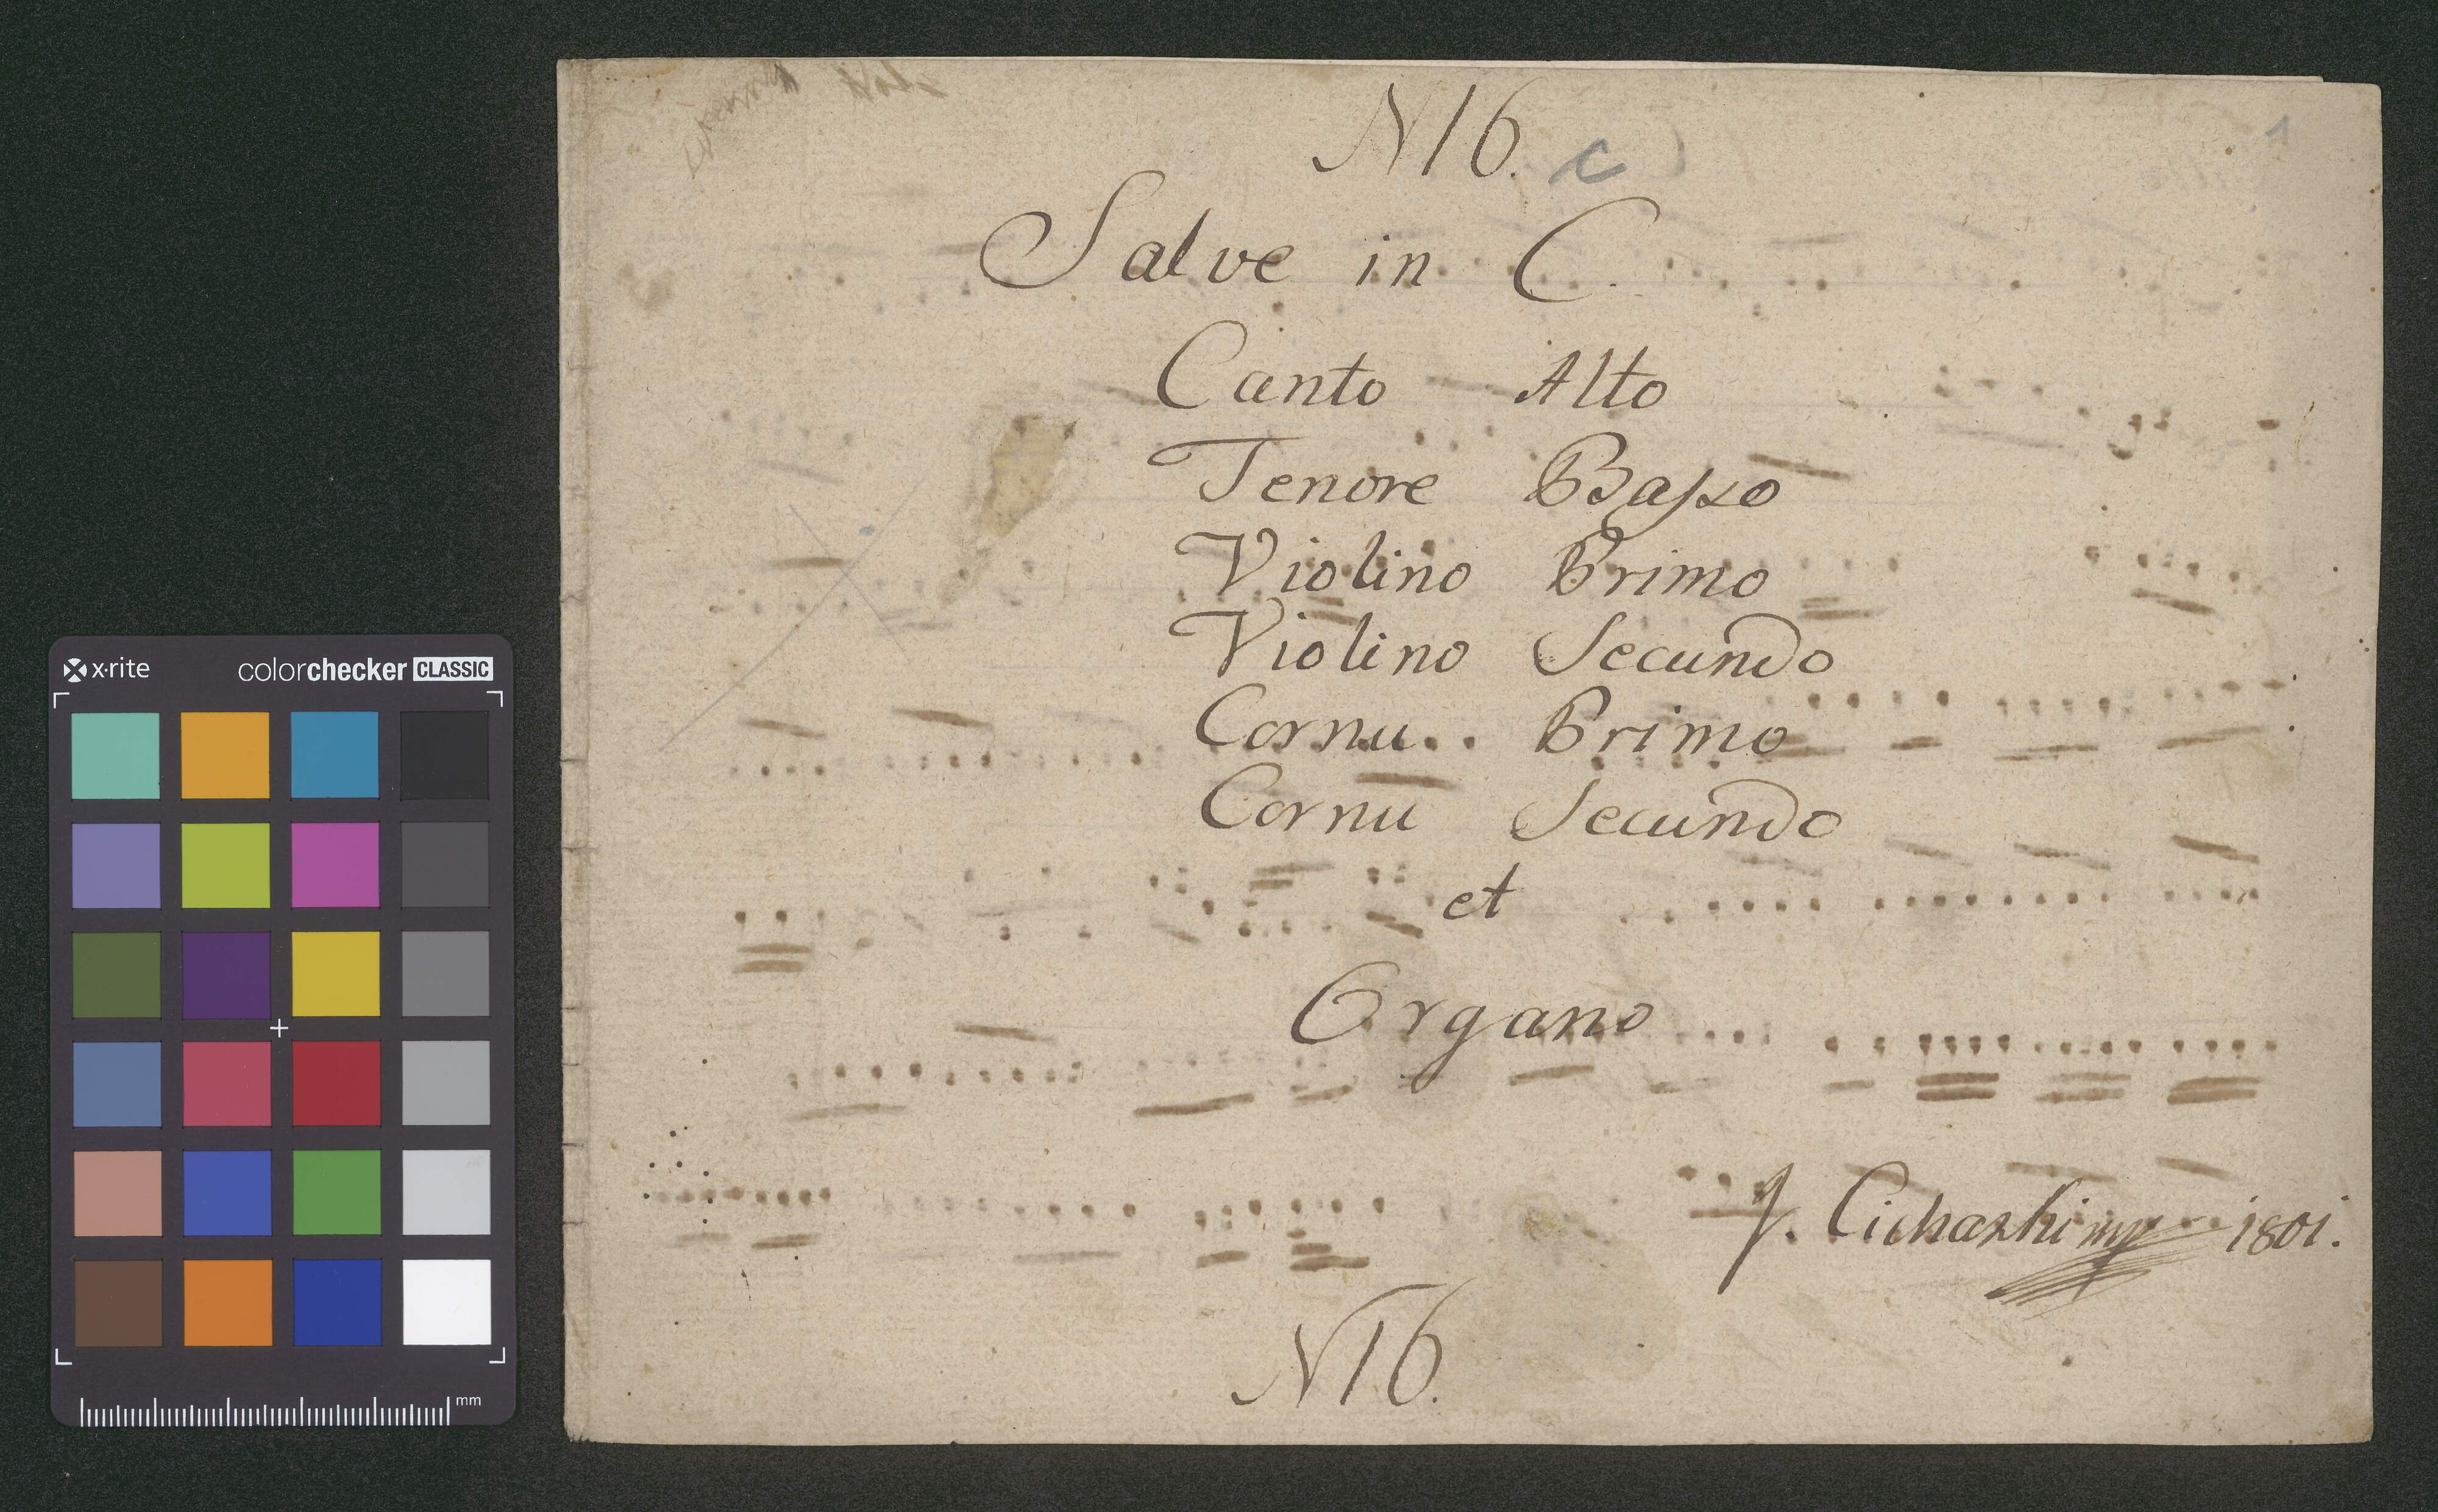 N16. c
1
Salve in C.
Canto Alto
Tenore Basso
Violino Brimo
Violino Secundo
Cornu Brimo
Cornu Secundo
et
Organo
J. Cichoshi mp 1801.
N16.
x·rite colorchecker CLASSIC
mm